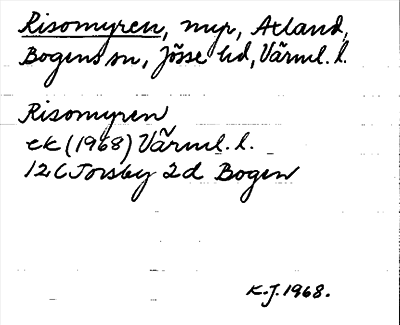 Risomyren, myr, Åtland,
Bogens sn, Jösse hd, Värml. l.
Risomyren
ek (1968) Värml. l.
12C Torsby 2d Bogen
K.J. 1968.